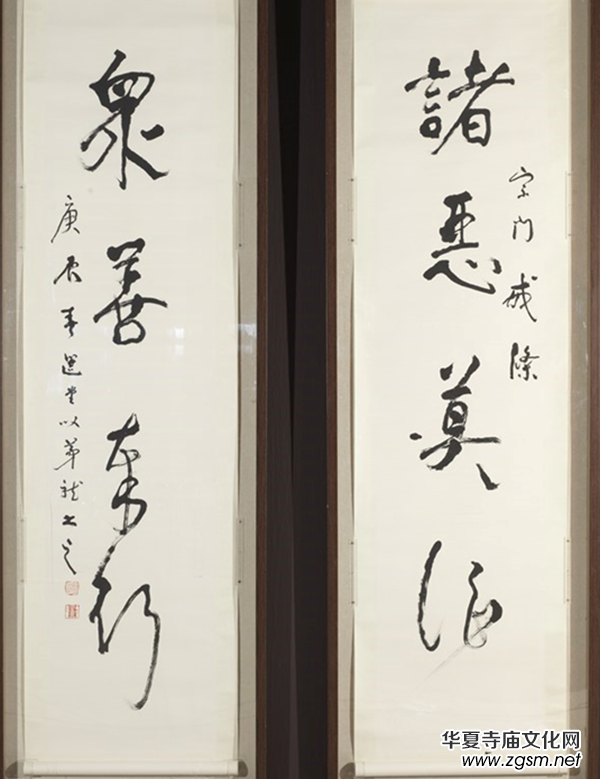 諸惡莫作
宗门戒條
眾善奉行
庚辰春選堂以茅龍书之
华夏寺庙文化网
www.zgsm.net